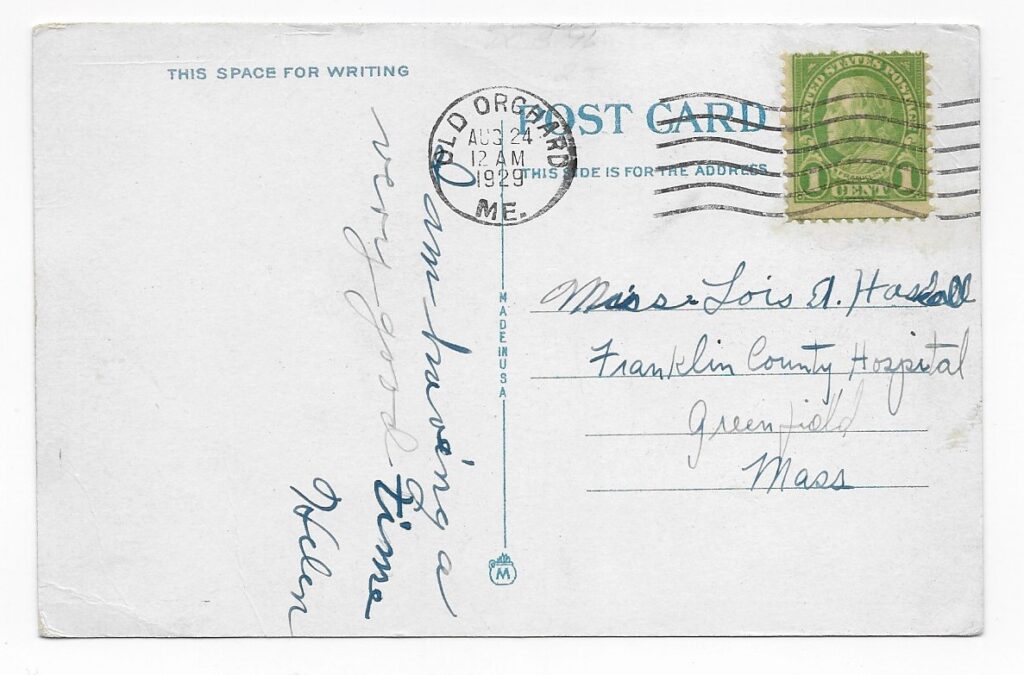 THIS SPACE FOR WRITING
I am having a
very good time
Helen
OLD ORCHARD
AUG 24
12 AM
1929
ME.
POST CARD
THIS SIDE IS FOR THE ADDRESS
UNITED STATES POSTAGE
FRANKLIN
1 CENT 1
MADE IN USA
M
Miss Lois A. Haskell
Franklin County Hospital
Greenfield
Mass